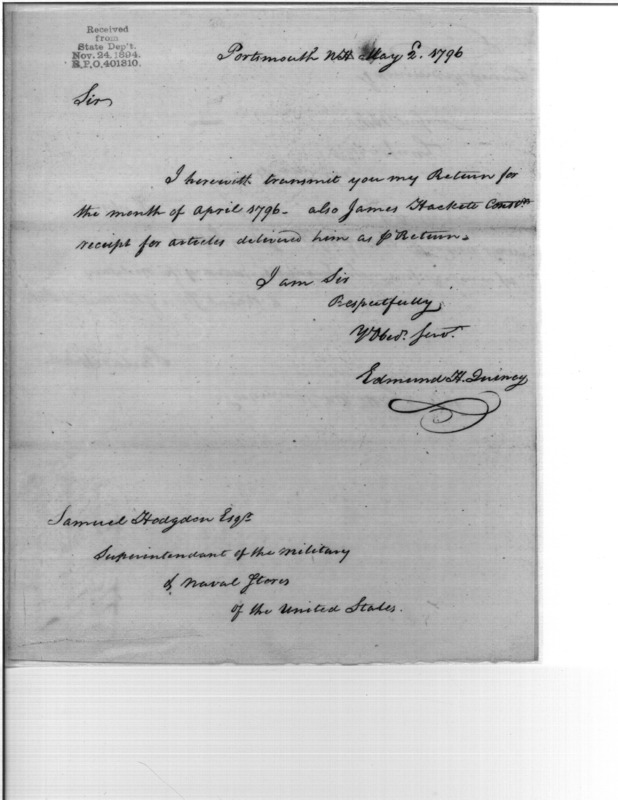 Received
from
State Dep't.
Nov. 24, 1894.
R.P.O. 401810.
Portsmouth NH May 2. 1796
Sir
I herewith transmit you my Return for
the month of April 1796 - also James Hackett
receipt for articles delivered him as pr Return.
I am Sir
Respectfully
Yr Obedt. Servt.
Edmund H. Quincy
Samuel Hodgdon Esqr
Superintendant of the Military
& Naval Stores
of the United States.